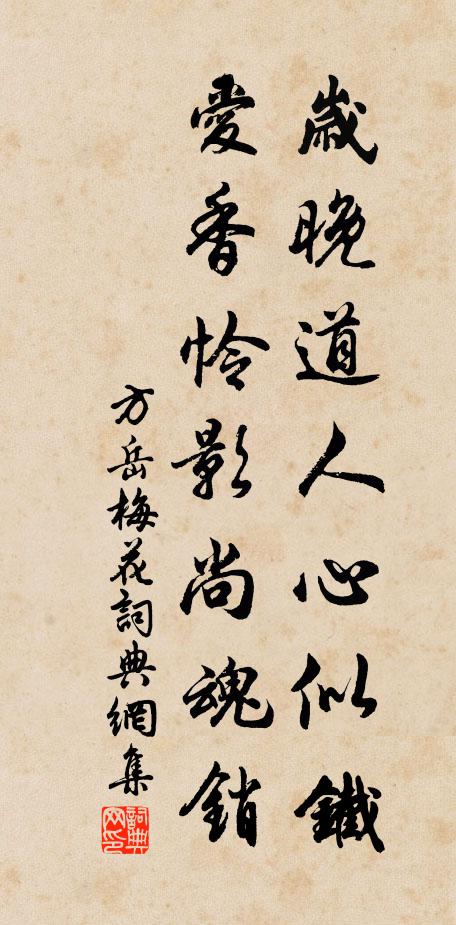 歲晚道人心似鐵
愛香怜影尚魂銷
方岳梅花詞典網集
詞典網印